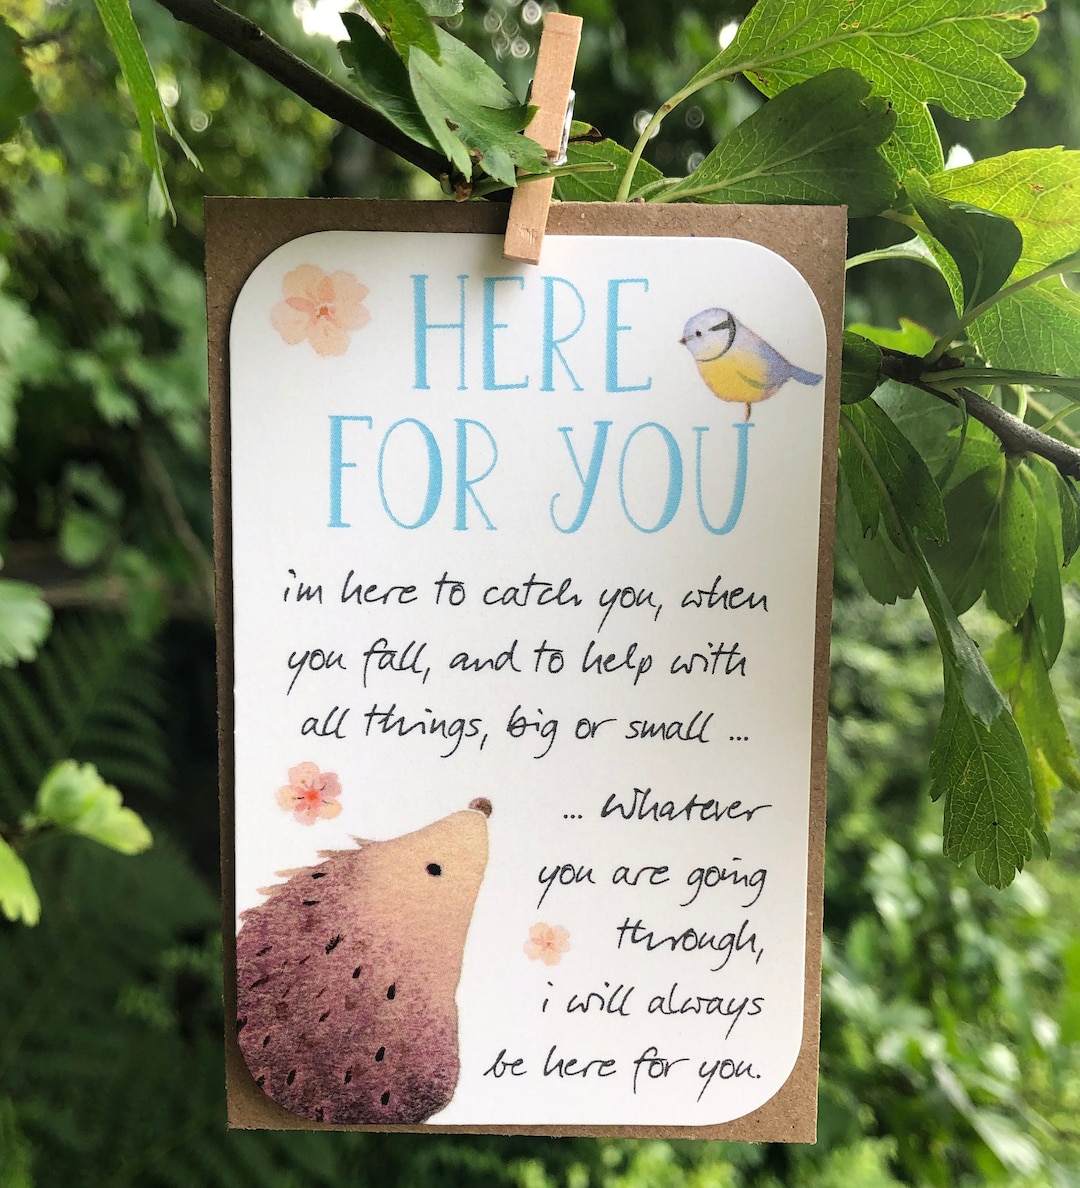 HERE
FOR YOU
i'm here to catch you, when
you fall, and to help with
all things, big or small ...
... Whatever
you are going
through,
i will always
be here for you.